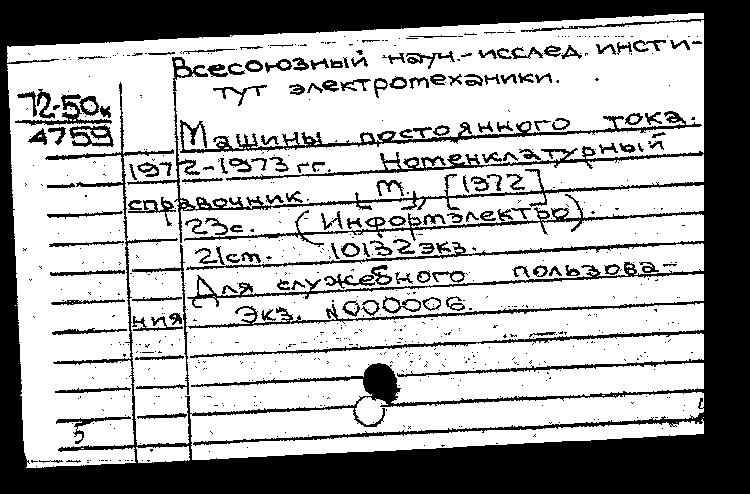 Всесоюзный науч.-исслед. инсти-
тут электромеханики.
72-50к
4759
Машины постоянного тока.
1972-1973 гг. Номенклатурный
справочник. [М.], [1972]
23с. (Информэлектро).
21 см. 10132 экз.
Для служебного пользова-
ния. Экз. №000006.
5